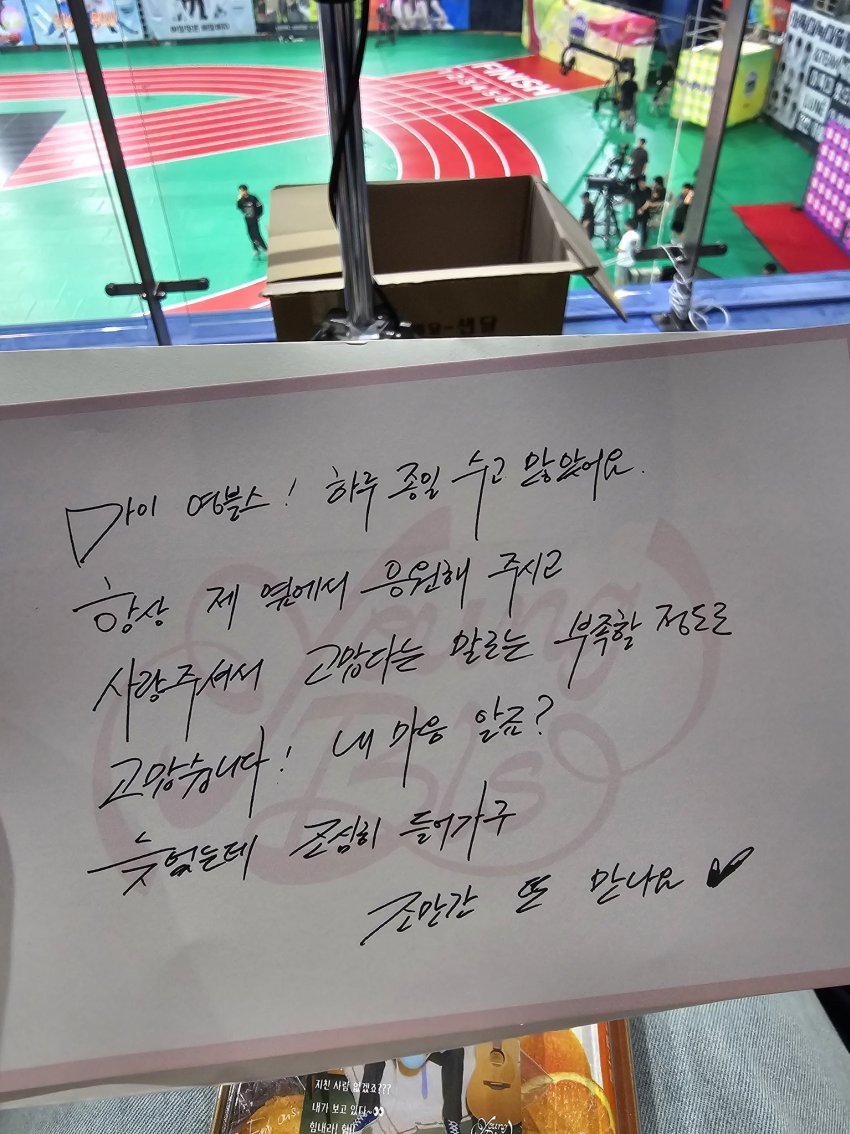 FINISH
1 2 3 4 5 6
마이 영블스! 하루 종일 수고 많았어요.
항상 제 옆에서 응원해 주시고
사랑주셔서 고맙다는 말로는 부족할 정도로
고맙습니다! 내 마음 알죠?
늦었는데 조심히 들어가구
조만간 또 만나요 ♥
Young
Bls
지친 사람 없겠죠???
내가 보고 있다~👀
힘내라! 힘!
Young